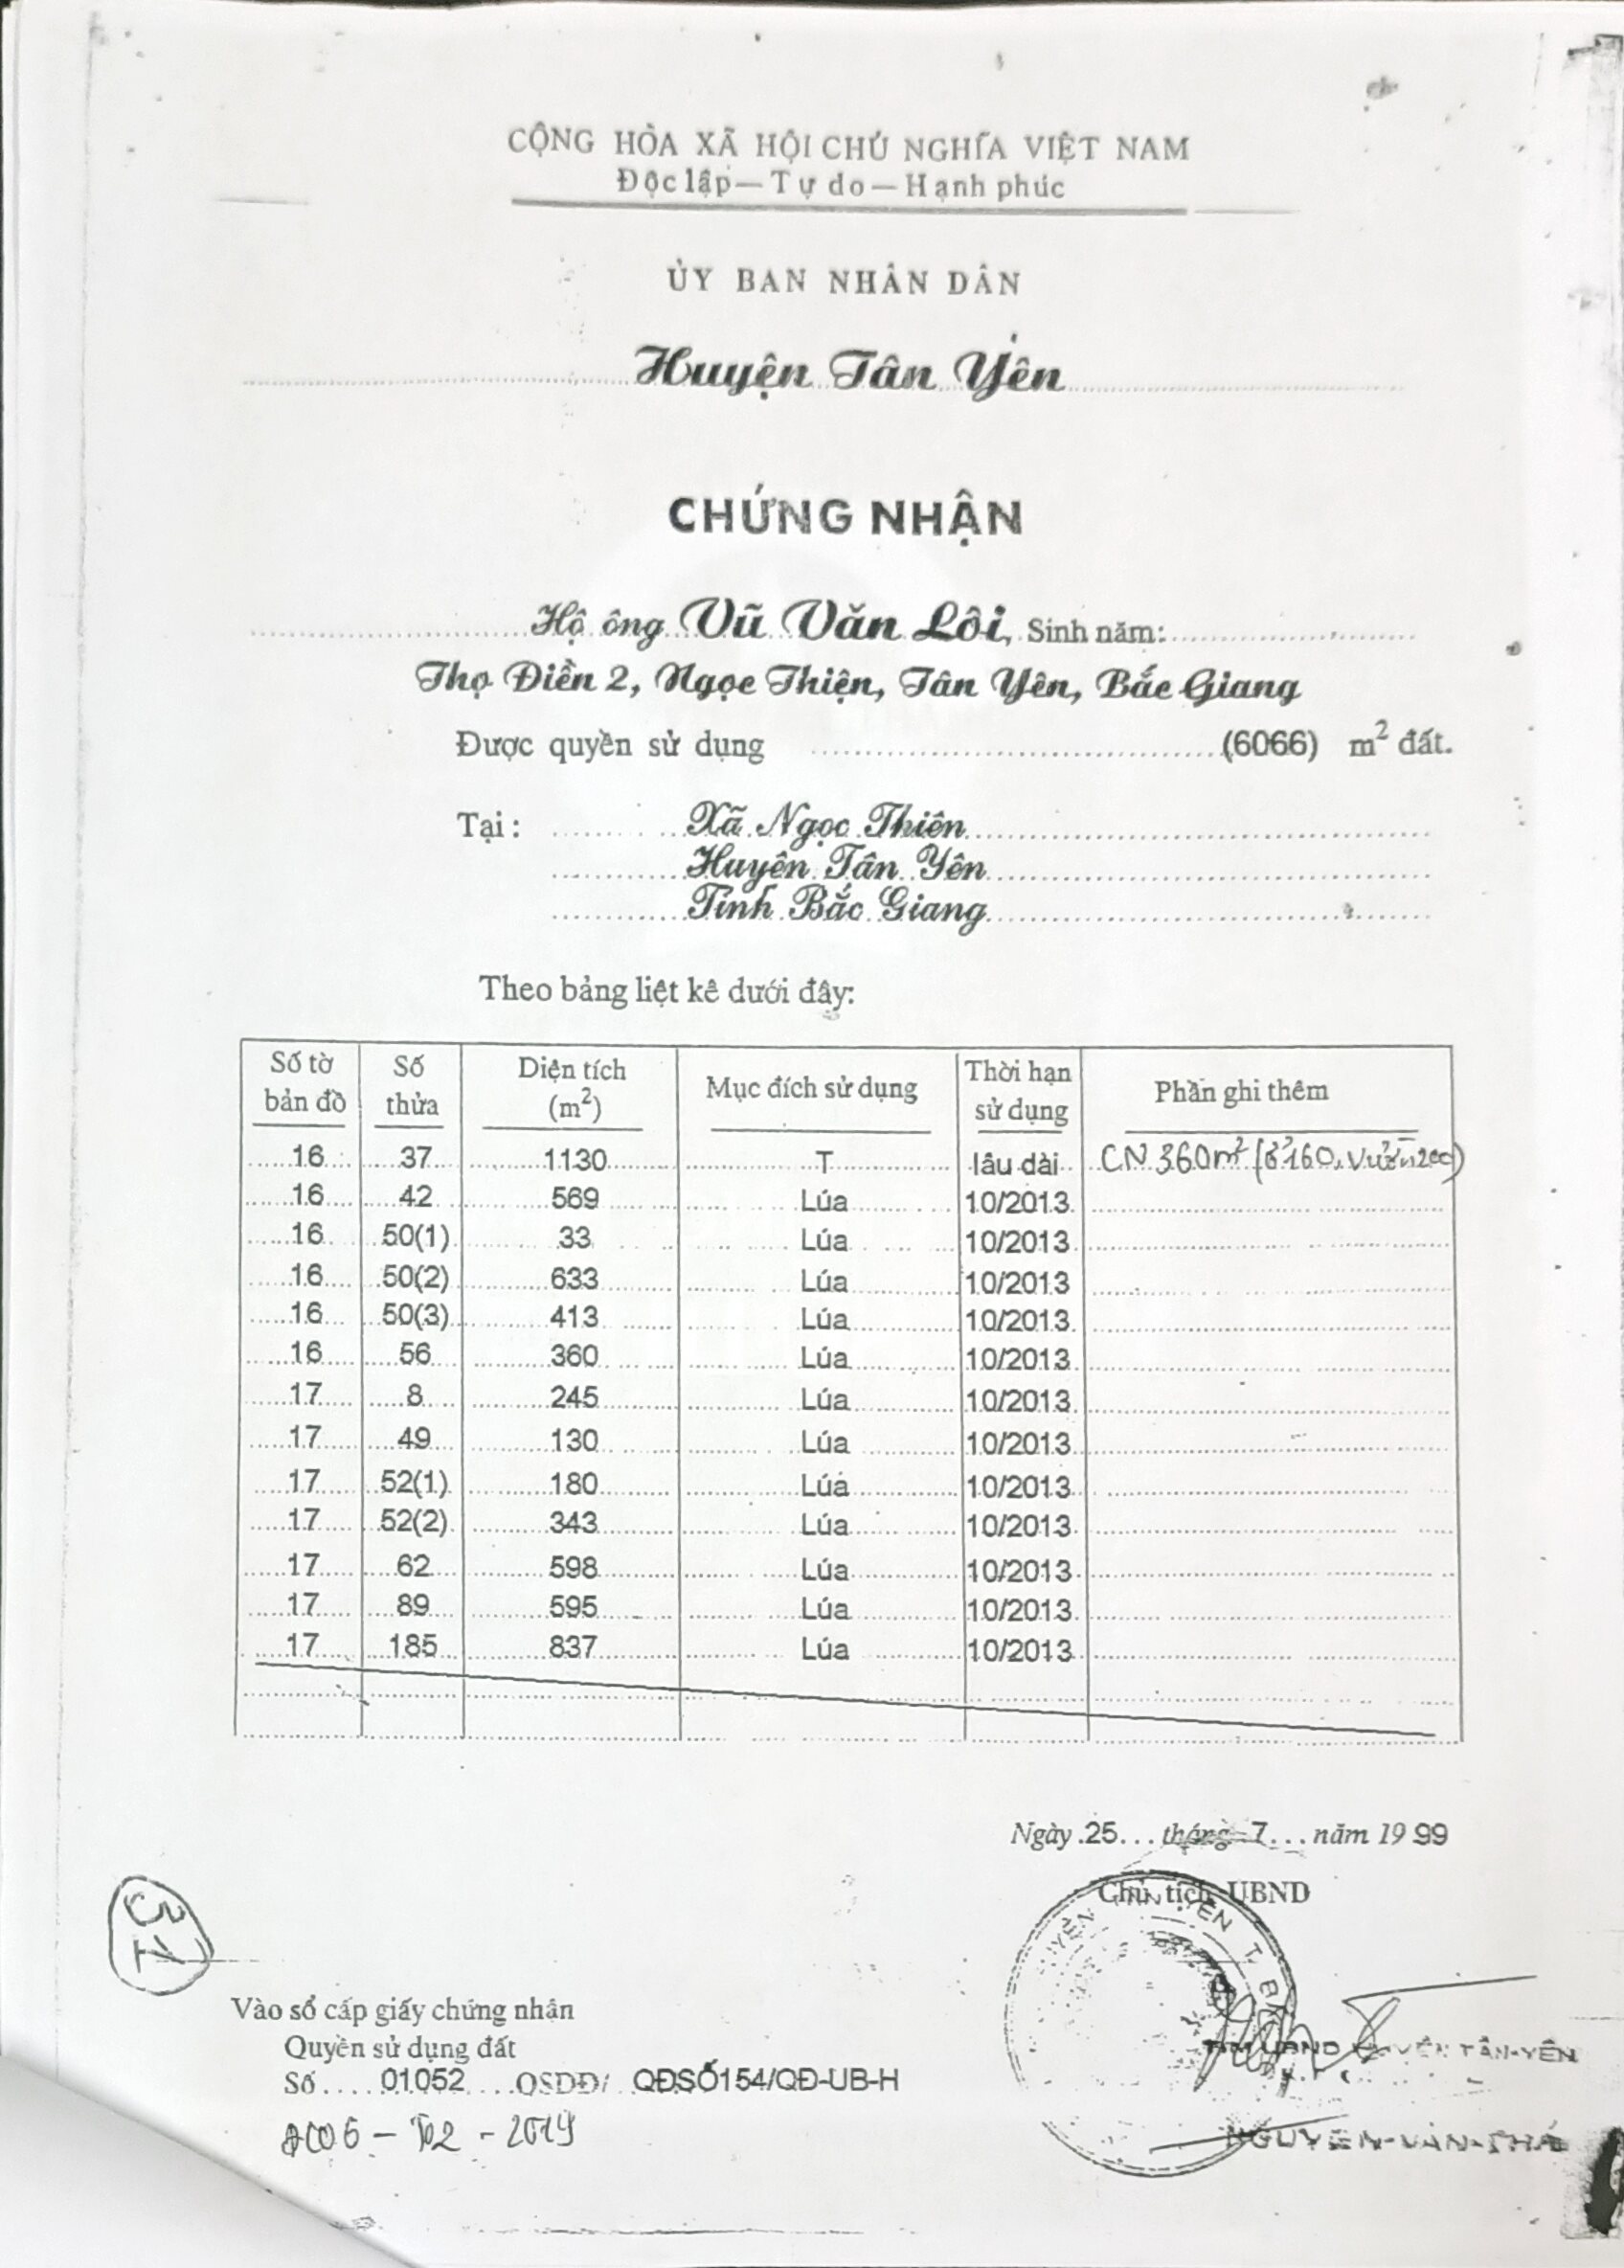 CỘNG HÒA XÃ HỘI CHỦ NGHĨA VIỆT NAM
Độc lập — Tự do — Hạnh phúc
ỦY BAN NHÂN DÂN
Huyện Tân Yên
CHỨNG NHẬN
Hộ ông Vũ Văn Lôi, Sinh năm:
Thọ Điền 2, Ngọc Thiện, Tân Yên, Bắc Giang
Được quyền sử dụng (6066) m² đất.
Tại: Xã Ngọc Thiện
Huyện Tân Yên
Tỉnh Bắc Giang
Theo bảng liệt kê dưới đây:
Số tờ bản đồ Số thửa Diện tích (m²) Mục đích sử dụng Thời hạn sử dụng Phần ghi thêm
16 37 1130 T lâu dài CN 360m² (ở 160, vườn 200)
16 42 569 Lúa 10/2013
16 50(1) 33 Lúa 10/2013
16 50(2) 633 Lúa 10/2013
16 50(3) 413 Lúa 10/2013
16 56 360 Lúa 10/2013
17 8 245 Lúa 10/2013
17 49 130 Lúa 10/2013
17 52(1) 180 Lúa 10/2013
17 52(2) 343 Lúa 10/2013
17 62 598 Lúa 10/2013
17 89 595 Lúa 10/2013
17 185 837 Lúa 10/2013
Ngày 25 tháng 7 năm 1999
Chủ tịch UBND
Vào sổ cấp giấy chứng nhận
Quyền sử dụng đất
Số 01052 QSDĐ/ QĐSỐ154/QĐ-UB-H
UBND HUYỆN TÂN-YÊN
NGUYỄN-VĂN